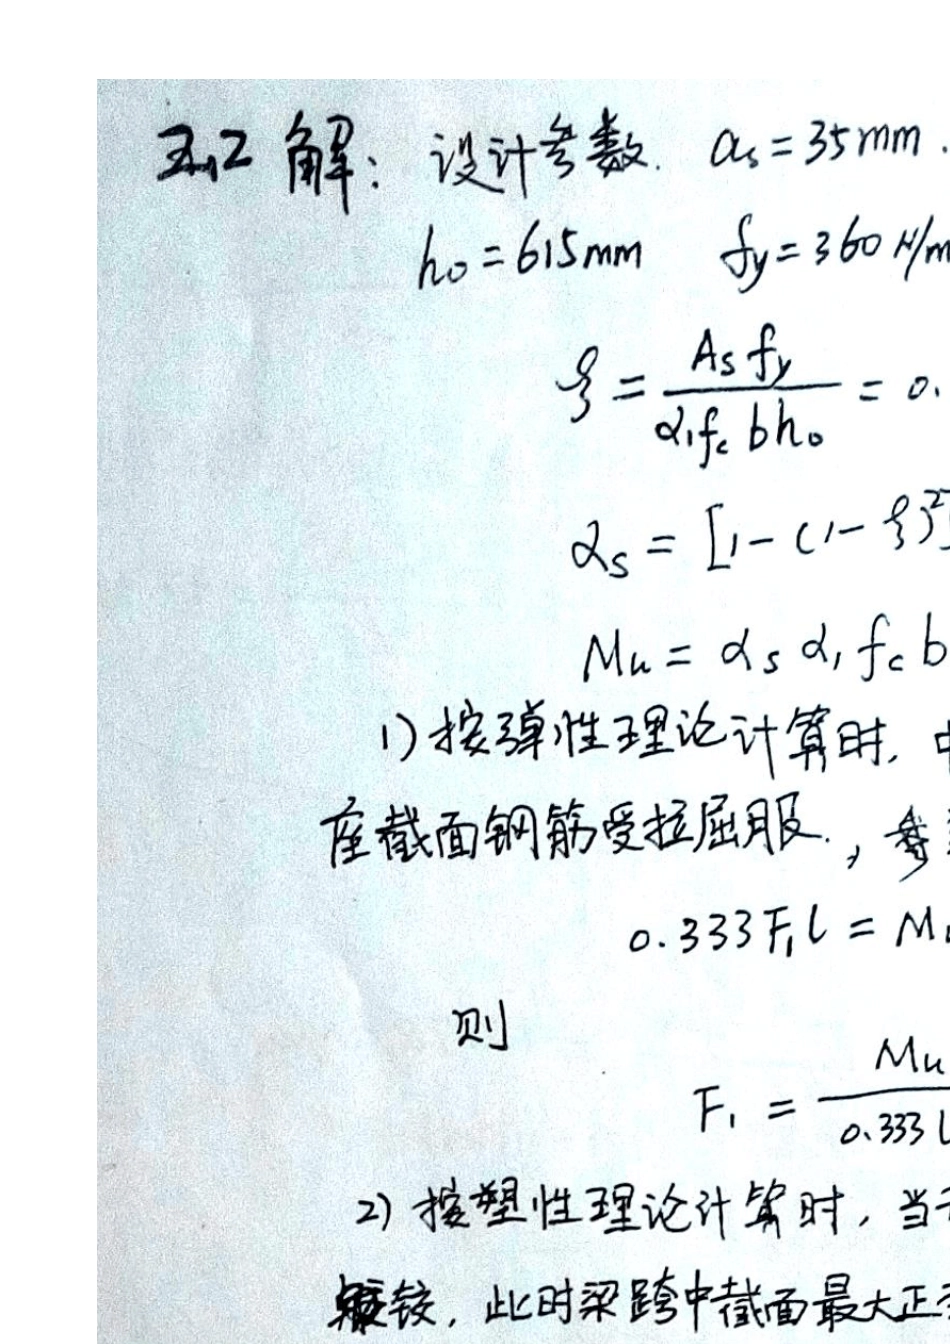 三、2 解: 设计参数. as=35mm.
h₀=615mm fy=360 N/m
ξ = As fy / α₁fc bh₀ = 0.
αs = [1-(1-ξ)²]
Mu = αs α₁ fc b
1) 按弹性理论计算时,
座截面钢筋受拉屈服.,
0.333F₁l = M
则
F₁ = Mu / 0.333 l
2) 按塑性理论计算时, 当
铰, 此时梁跨中截面最大正